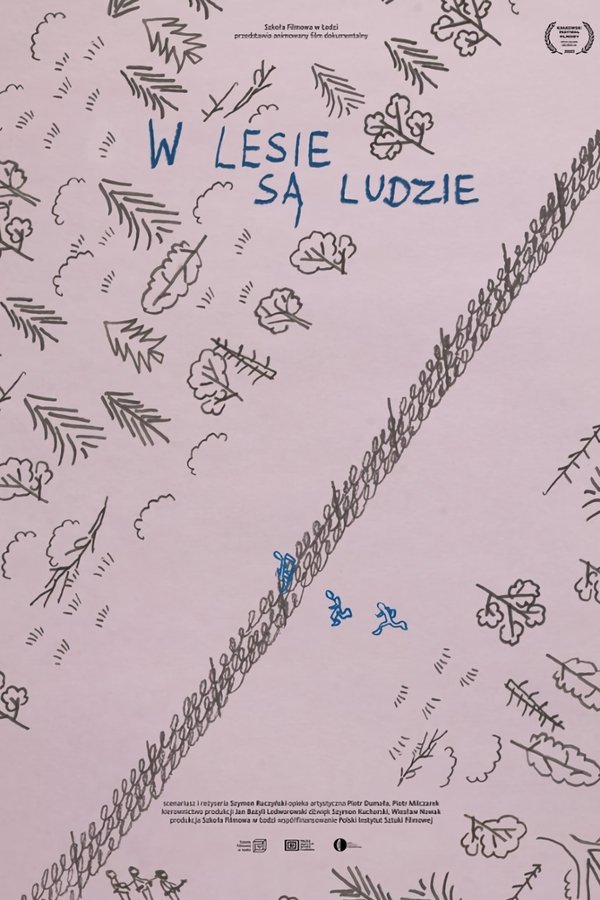 Szkoła Filmowa w Łodzi
przedstawia animowany film dokumentalny
KRAKOWSKI
FESTIWAL
FILMOWY
2023
W LESIE
SĄ LUDZIE
scenariusz i reżyseria Szymon Ruczyński opieka artystyczna Piotr Dumała, Piotr Milczarek
kierownictwo produkcji Jan Bazyli Ledworowski dźwięk Szymon Kucharski, Wiesław Nowak
produkcja Szkoła Filmowa w Łodzi współfinansowanie Polski Instytut Sztuki Filmowej
Szkoła
Filmowa
w Łodzi